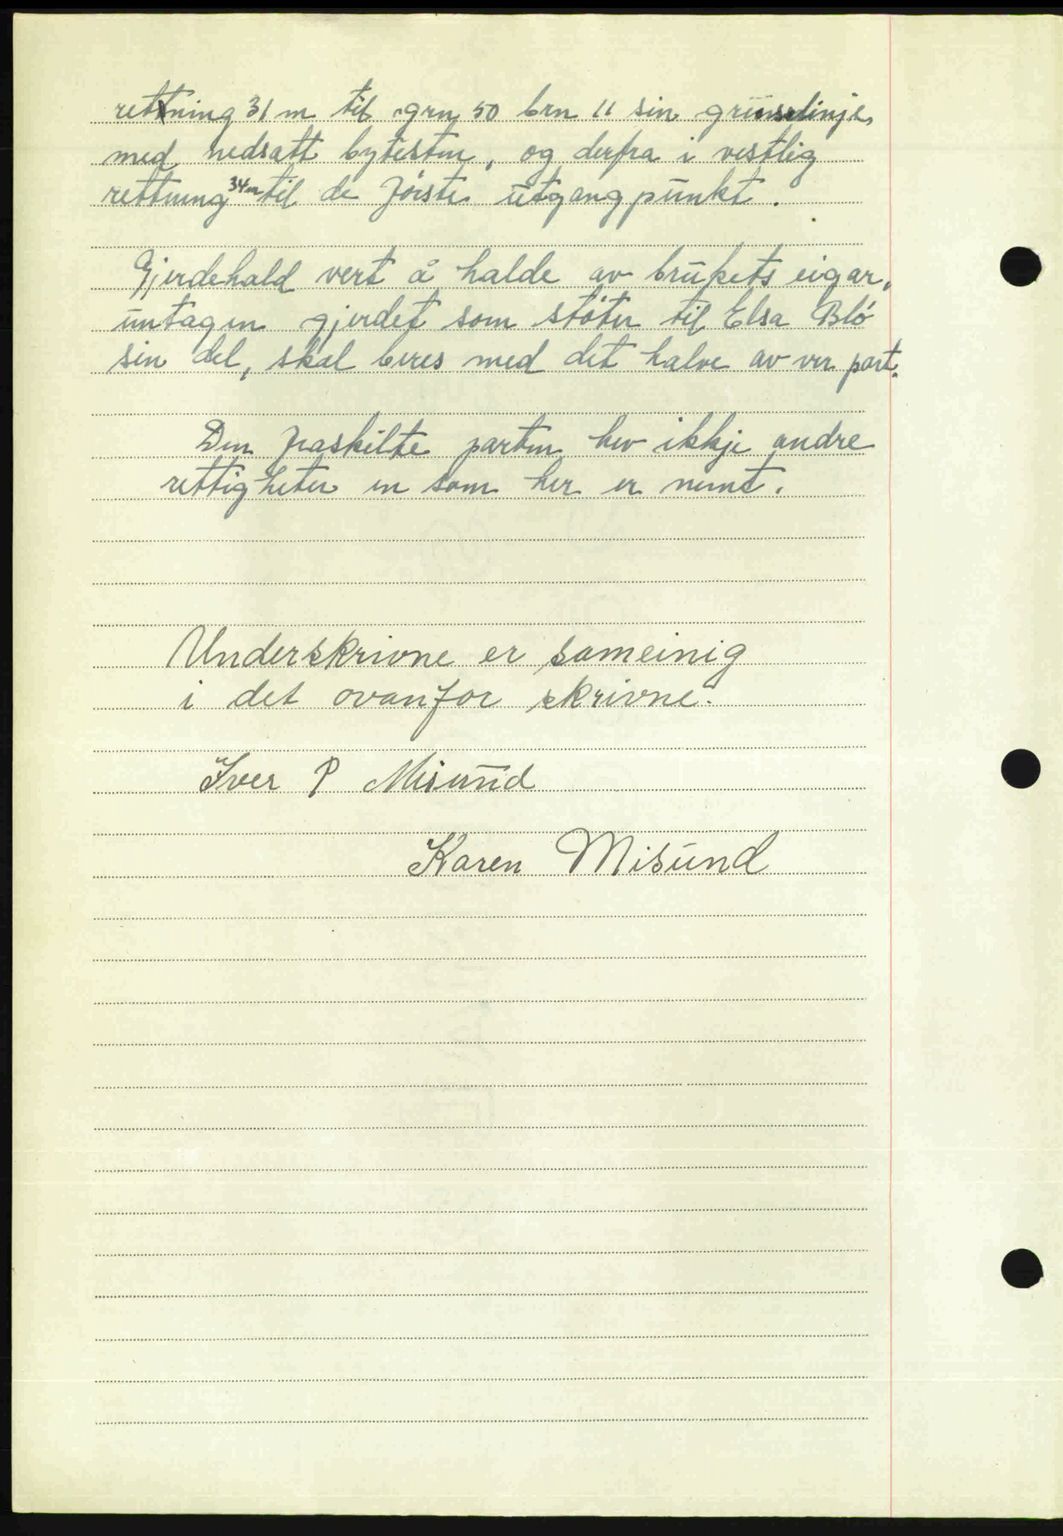 rettning 31 m til grn 50 brn 11 sin grünselinje,
med nedsatt bytesten, og derfra i vestlig
rettning 34m til de førstе utgangpunkt.
Gjerdehald vert å halde av brukets eigar,
untagen gjerdet som støter til Elsa Blø
sin del, skal beres med det halve av ver part.
Den fraskilte parten hev ikkje andre
rettigheter en som her er nemt.
Underskrivne er sameinig
i det ovanfor skrivne.
Iver P Misund
Karen Misund